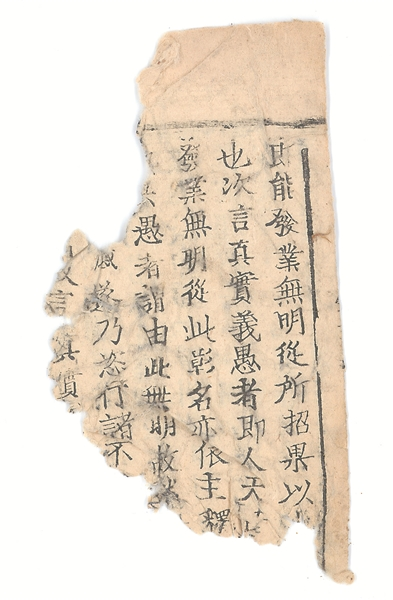 即能發業無明從所招果以
也次言真實義愚者即人天
發業無明從此彰名亦依主釋
愚者謂由此無明故
乃恣行諸不
言真實